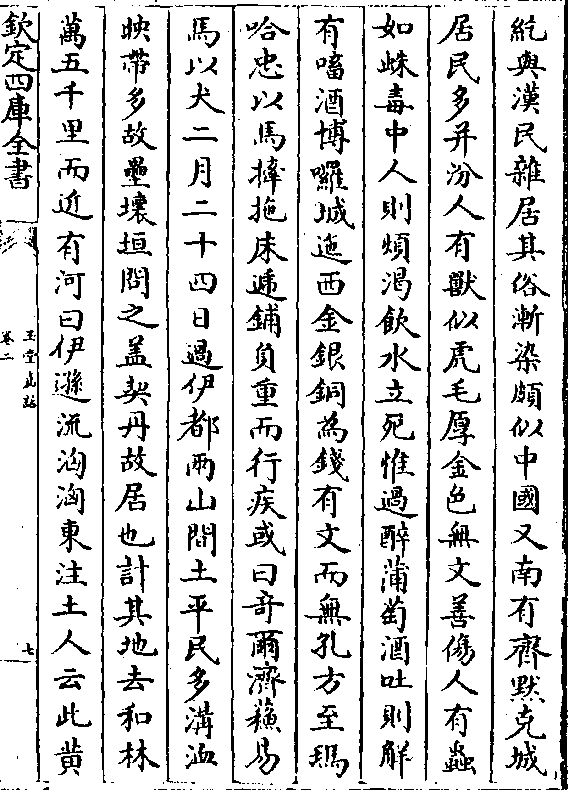 紇與漢民雜居其俗漸染頗似中國又南有齊黙克城
居民多并汾人有獸似虎毛厚金色無文善傷人有蟲
如蛛毒中人則煩渴飲水立死惟過醉蒲萄酒吐則解
有㗜酒博囉城迤西金銀銅為錢有文而無孔方至瑪
哈忠以馬搼拖床遞鋪負重而行疾或曰竒爾濟蘓易
馬以犬二月二十四日過伊都兩山間土平民多溝洫
映帶多故壘壞垣問之盖契丹故居也計其地去和林
萬五千里而近有河曰伊遜流洶洶東注土人云此黄
欽定四庫全書
玉堂嘉話
卷二
七